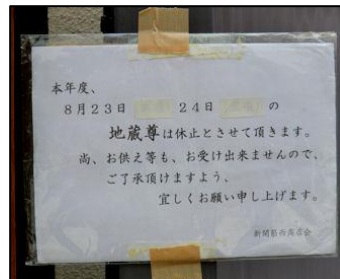 本年度、
8月23日 24日 の
地蔵尊は休止とさせて頂きます。
尚、お供え等も、お受け出来ませんので、
ご了承頂けますよう、
宜しくお願い申し上げます。